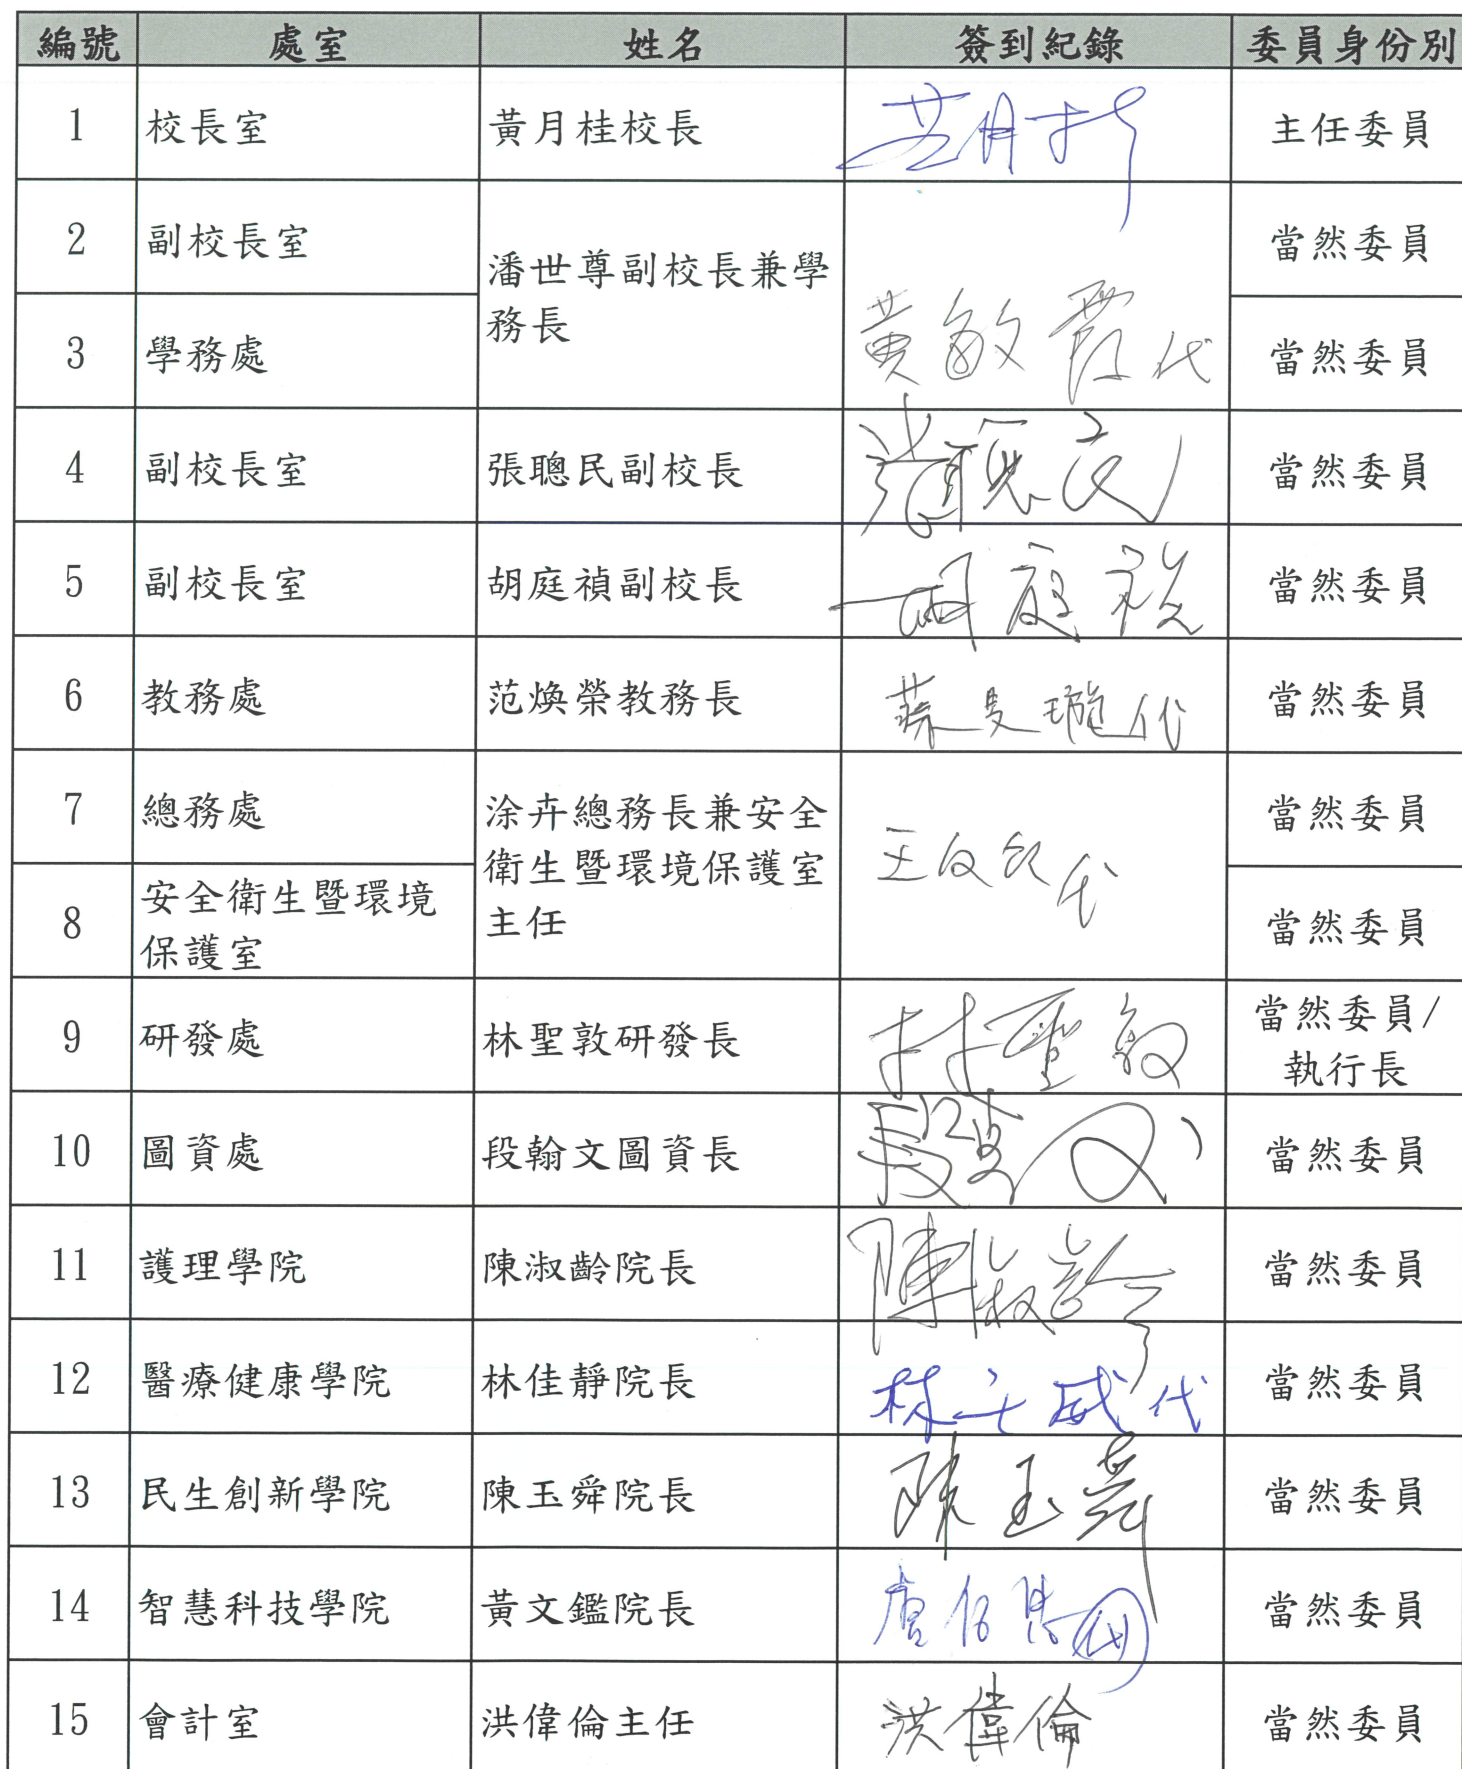 編號 處室 姓名 簽到紀錄 委員身份別
1 校長室 黃月桂校長 黃月桂 主任委員
2 副校長室 當然委員
潘世尊副校長兼學
務長
黃敏霞代
3 學務處 當然委員
4 副校長室 張聰民副校長 張聰民 當然委員
5 副校長室 胡庭禎副校長 胡庭禎 當然委員
6 教務處 范煥榮教務長 代 當然委員
7 總務處 當然委員
涂卉總務長兼安全
衛生暨環境保護室
主任
代
8 安全衛生暨環境
保護室
當然委員
9 研發處 林聖敦研發長 林聖敦 當然委員/
執行長
10 圖資處 段翰文圖資長 段翰文 當然委員
11 護理學院 陳淑齡院長 陳淑齡 當然委員
12 醫療健康學院 林佳靜院長 代 當然委員
13 民生創新學院 陳玉舜院長 陳玉舜 當然委員
14 智慧科技學院 黃文鑑院長 代 當然委員
15 會計室 洪偉倫主任 洪偉倫 當然委員